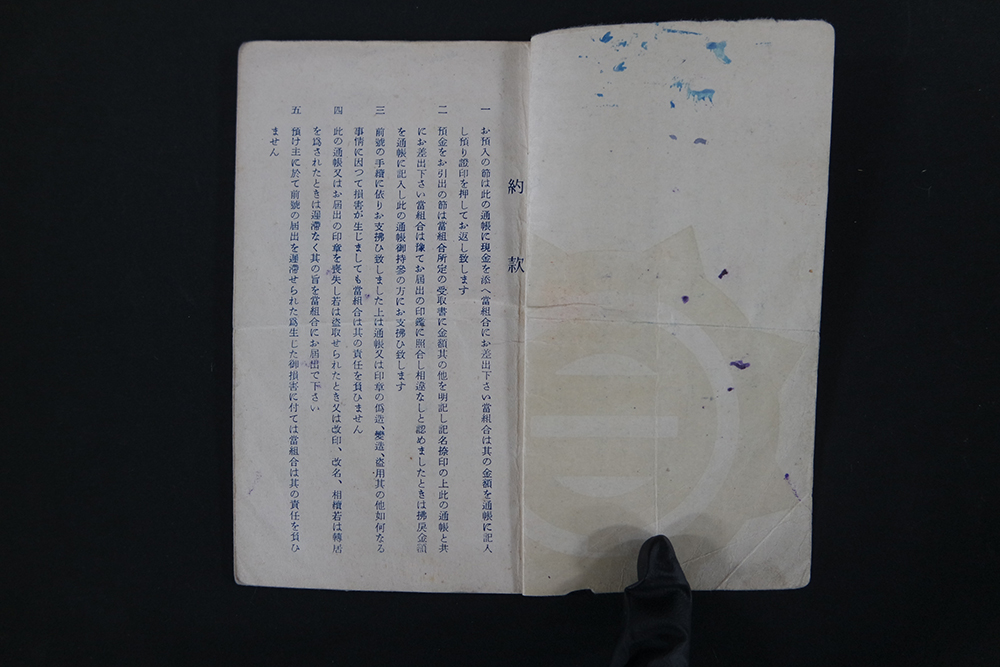 約款
一 お預入の節は此の通帳に現金を添へ當組合にお差出下さい當組合は其の金額を通帳に記入
し預り證印を押してお返し致します
二 預金をお引出の節は當組合所定の受取書に金額其の他を明記し記名捺印の上此の通帳と共
にお差出下さい當組合は豫てお届出の印鑑に照合し相違なしと認めましたときは拂戻金額
を通帳に記入し此の通帳御持參の方にお支拂ひ致します
三 前號の手續に依りお支拂ひ致しました上は通帳又は印章の僞造、變造、盗用其の他如何なる
事情に因つて損害が生じましても當組合は其の責任を負ひません
四 此の通帳又はお届出の印章を喪失し若は盗取せられたとき又は改印、改名、相續若は轉居
を爲されたときは遲滯なく其の旨を當組合にお届出で下さい
五 預け主に於て前號の届出を遲滯せられた爲生じた御損害に付ては當組合は其の責任を負ひ
ません